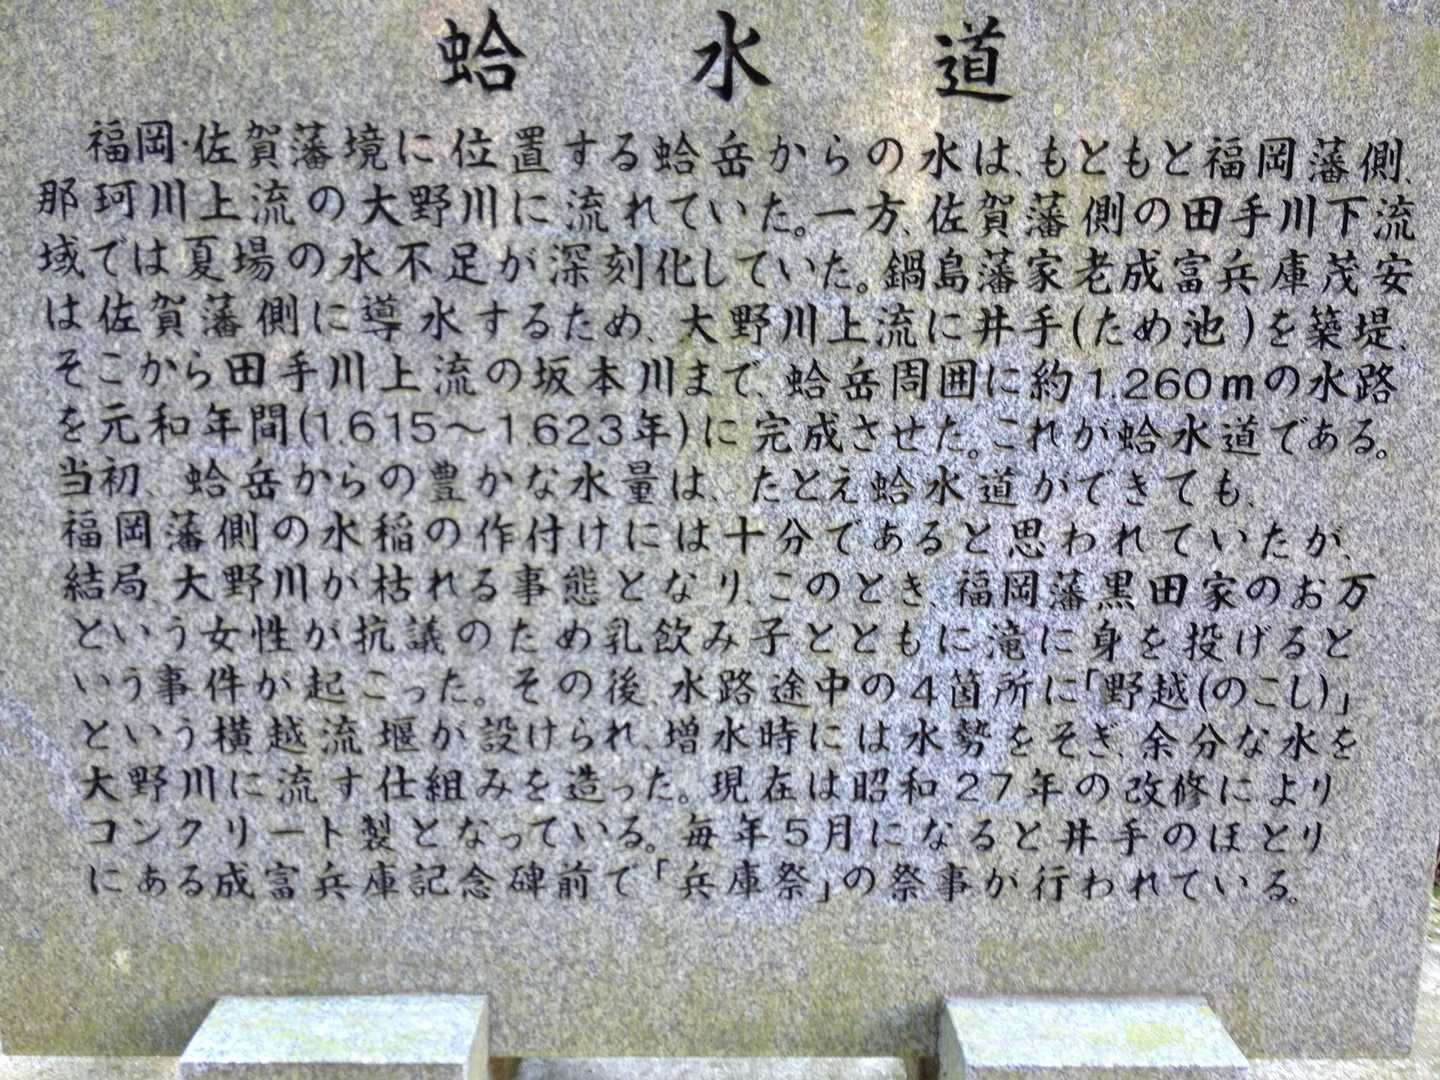 蛤水道
福岡・佐賀藩境に位置する蛤岳からの水は、もともと福岡藩側、
那珂川上流の大野川に流れていた。一方、佐賀藩側の田手川下流
域では夏場の水不足が深刻化していた。鍋島藩家老成富兵庫茂安
は佐賀藩側に導水するため、大野川上流に井手(ため池)を築堤、
そこから田手川上流の坂本川まで、蛤岳周囲に約1.260mの水路
を元和年間(1.615〜1.623年)に完成させた。これが蛤水道である。
当初、蛤岳からの豊かな水量は、たとえ蛤水道ができても、
福岡藩側の水稲の作付けには十分であると思われていたが、
結局、大野川が枯れる事態となり、このとき、福岡藩黒田家のお万
という女性が抗議のため乳飲み子とともに滝に身を投げると
いう事件が起こった。その後、水路途中の4箇所に「野越(のこし)」
という横越流堰が設けられ、増水時には水勢をそぎ、余分な水を
大野川に流す仕組みを造った。現在は昭和27年の改修により
コンクリート製となっている。毎年5月になると井手のほとり
にある成富兵庫記念碑前で「兵庫祭」の祭事が行われている。